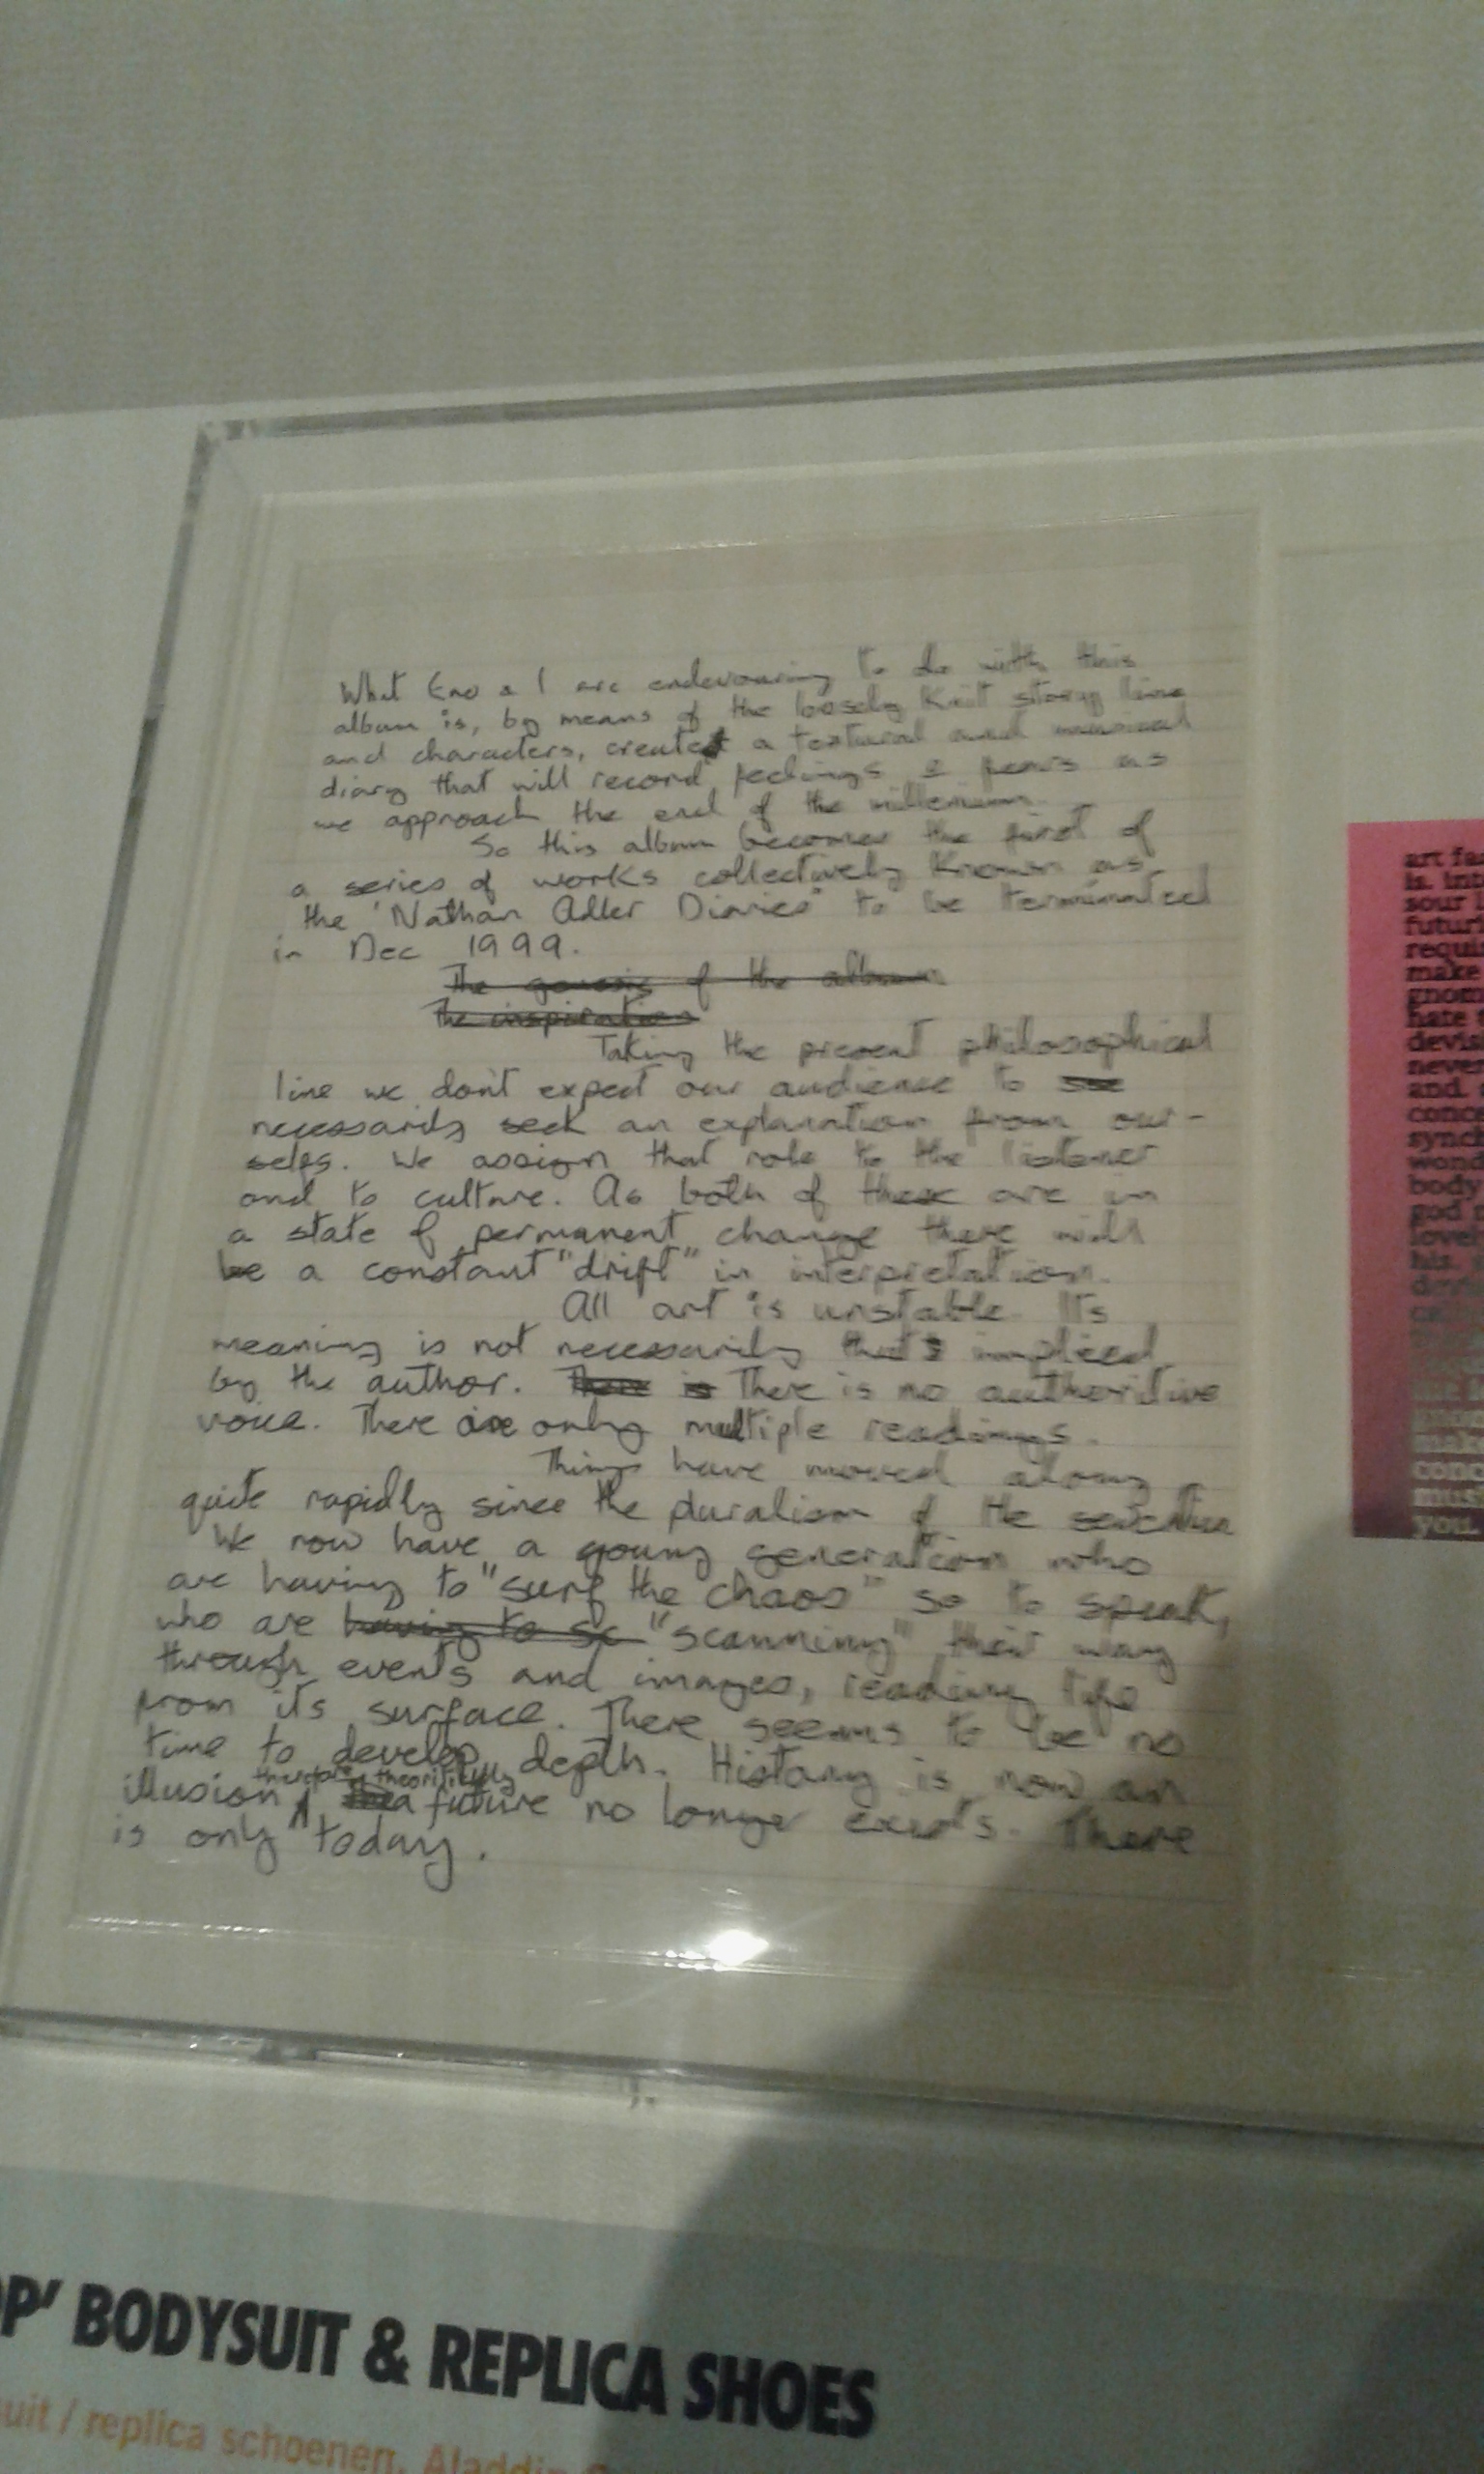 What Eno & I are endevouring to do with this
album is, by means of the loosely Knit story line
and characters, create a textural and musical
diary that will record feelings & fears as
we approach the end of the millenium.
So this album becomes the first of
a series of works collectively Known as
the 'Nathan Adler Diaries' to be terminated
in Dec 1999.
The genesis of the album
The inspiration
Taking the present philosophical
line we don't expect our audience to
necessarily seek an explanation from our-
selfs. We assign that role to the listener
and to culture. As both of these are in
a state of permanent change there will
be a constant "drift" in interpretation.
All art is unstable. Its
meaning is not necessarily that implied
by the author. There is There is no authoritive
voice. There are only multiple readings.
Things have moved along
quite rapidly since the pluralism of the seventies
We now have a young generation who
are having to "surf the chaos" so to speak,
who are having to sc "scanning" their way
through events and images, reading life
from its surface. There seems to be no
time to develop depth. History is now an
therefore
illusion a future no longer exists. There
is only today.
art
is.
sour
make
hate
never
and.
body
god
his.
you.
P' BODYSUIT & REPLICA SHOES
suit / replica schoenen, Aladdin